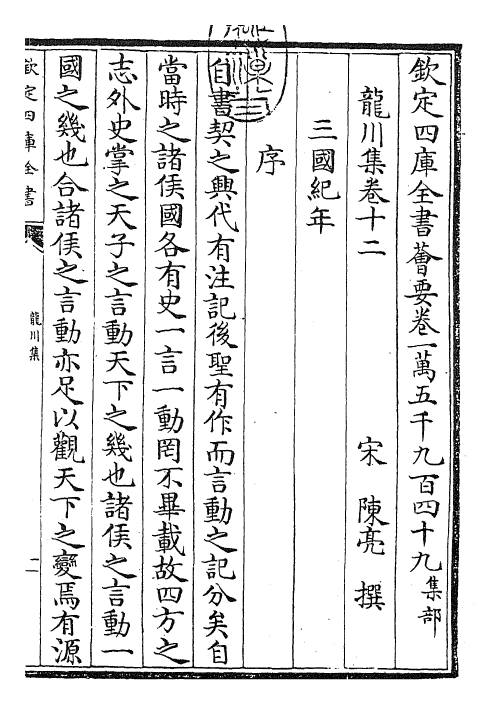 欽定四庫全書薈要卷一萬五千九百四十九集部
龍川集卷十二
宋 陳亮 撰
三國紀年
序
自書契之興代有注記後聖有作而言動之記分矣自
當時之諸侯國各有史一言一動罔不畢載故四方之
志外史掌之天子之言動天下之幾也諸侯之言動一
國之幾也合諸侯之言動亦足以觀天下之變焉有源
欽定四庫全書
龍川集